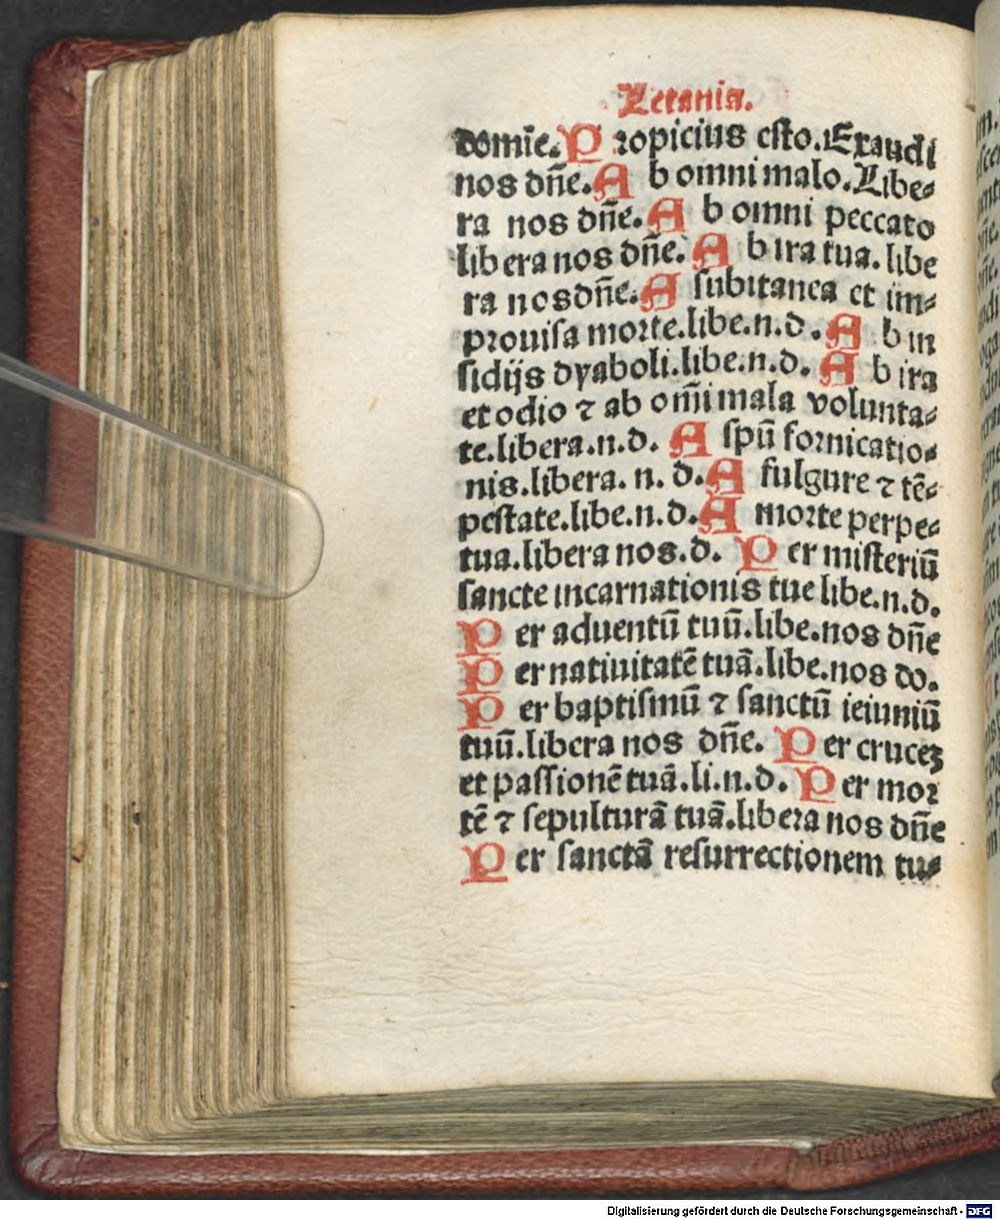 Letania.
domīe. Propicius esto. Exaudi
nos dn̄e. Ab omni malo. Libe⸗
ra nos dn̄e. Ab omni peccato
libera nos dn̄e. Ab ira tua. libe
ra nos dn̄e. A subitanea et im⸗
prouisa morte. libe. n. d. Ab in
sidijs dyaboli. libe. n. d. Ab ira
et odio ⁊ ab om̄i mala volunta⸗
te. libera. n. d. A spū fornicatio⸗
nis. libera. n. d. A fulgure ⁊ tē⸗
pestate. libe. n. d. A morte perpe⸗
tua. libera nos. d. Per misteriū
sancte incarnationis tue libe. n. d.
Per aduentū tuū. libe. nos dn̄e
Per natiuitatē tuā. libe. nos do.
Per baptismū ⁊ sanctū ieiuniū
tuū. libera nos dn̄e. Per crucez
et passionē tuā. li. n. d. Per mor
tē ⁊ sepulturā tuā. libera nos dn̄e
Per sanctā resurrectionem tu⸗
Digitalisierung gefördert durch die Deutsche Forschungsgemeinschaft - DFG